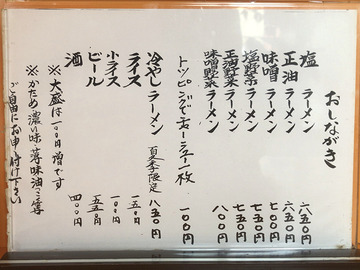 おしながき
塩ラーメン 六五〇円
正油ラーメン 六五〇円
味噌ラーメン 七〇〇円
塩野菜ラーメン 七五〇円
正油野菜ラーメン 七五〇円
味噌野菜ラーメン 八〇〇円
トッピングでチャーシュー一枚 一〇〇円
冷やしラーメン 夏季限定 八五〇円
ライス 一五〇円
小ライス 一〇〇円
ビール 五五〇円
酒 四〇〇円
※大盛は一〇〇円増です
※かため濃い味薄味油こ等
ご自由にお申し付け下さい